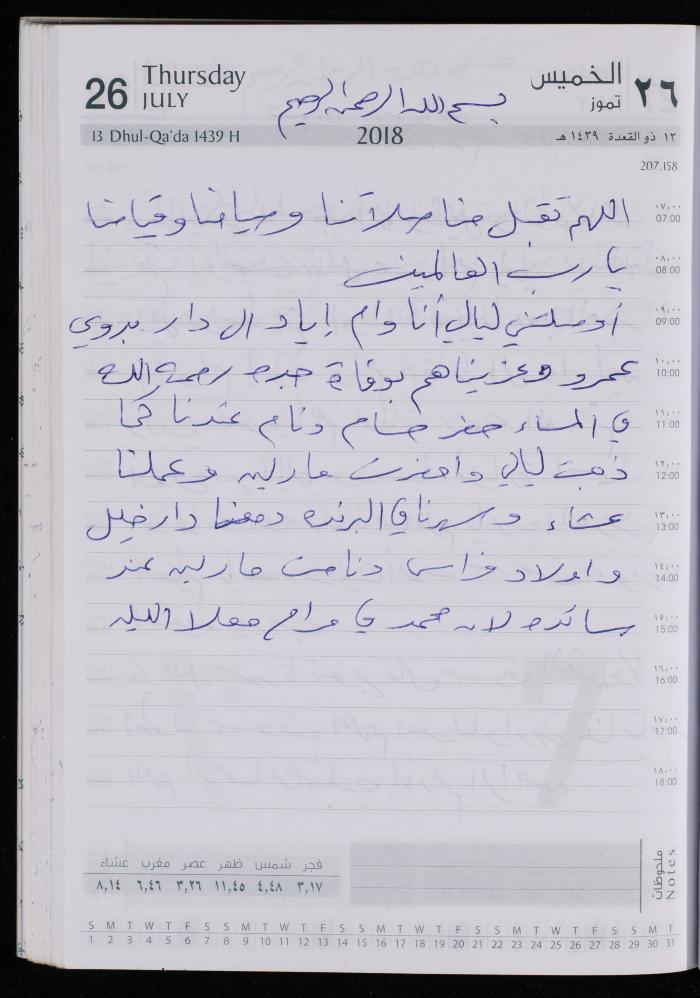 26 Thursday JULY
الخميس ٢٦ تموز
بسم الله الرحمن الرحيم
13 Dhul-Qa'da 1439 H 2018 ١٣ ذو القعدة ١٤٣٩ هـ
207.158
اللهم تقبل منا صلاتنا وصيامنا وقيامنا
يا رب العالمين
أوصلتني ليالي أنا وام إياد ال دار بدوي
عمرو وعزيناهم بوفاة جده رحمه الله
في المساء حضر حسام ونام عندنا كما
ذهبت ليالي واحضرت مارلين وعملنا
عشاء وسهرنا في البرنده دار خليل
واولاد فراس ونامت مارلين عند
سائده لان محمد في مرام الليله
٠٧:٠٠ 07:00
٠٨:٠٠ 08:00
٠٩:٠٠ 09:00
١٠:٠٠ 10:00
١١:٠٠ 11:00
١٢:٠٠ 12:00
١٣:٠٠ 13:00
١٤:٠٠ 14:00
١٥:٠٠ 15:00
١٦:٠٠ 16:00
١٧:٠٠ 17:00
١٨:٠٠ 18:00
فجر شمس ظهر عصر مغرب عشاء
٣,١٧ ٤,٤٨ ١١,٤٥ ٣,٢٦ ٦,٤٦ ٨,١٤
ملحوظات
Notes
S M T W T F S S M T W T F S S M T W T F S S M T W T F S S M T
1 2 3 4 5 6 7 8 9 10 11 12 13 14 15 16 17 18 19 20 21 22 23 24 25 26 27 28 29 30 31